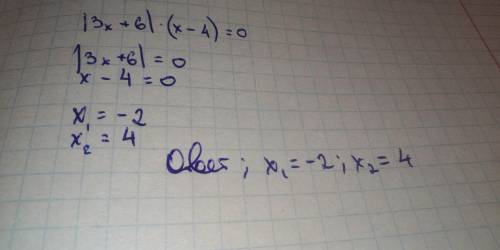 |3x+6|·(x-4)=0
|3x+6|=0
x-4=0
x₁=-2
x₂=4
Ответ; x₁=-2; x₂=4